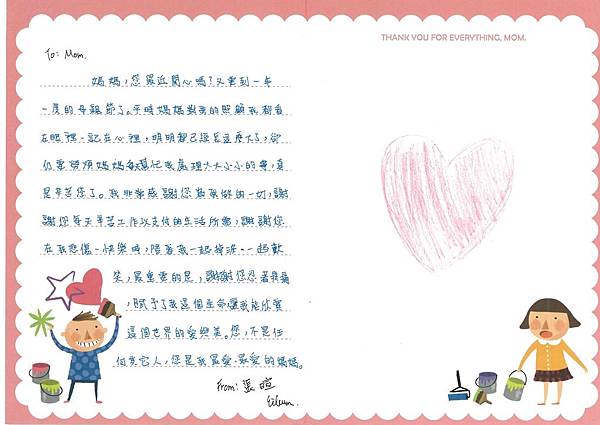 THANK YOU FOR EVERYTHING, MOM.
To: Mom.
媽媽，您最近開心嗎？又要到一年
一度的母親節了。平時媽媽對我的照顧我都看
在眼裡、記在心裡，明明都已經長這麼大了，卻
仍要勞煩媽媽每天幫忙我處理大大小小的事，真
是辛苦您了。我非常感謝您對我做的一切，謝
謝您每天辛苦工作以支付的生活所需，謝謝您
在我悲傷、快樂時，陪著我一起掉淚、一起歡
笑，最重要的是，謝謝您忍著與痛
，賦予了我這個生命，讓我能欣賞
這個世界的愛與美。您，不是任
何其它人，您是我最愛、最愛的媽媽。
From: 暄
Eileen.